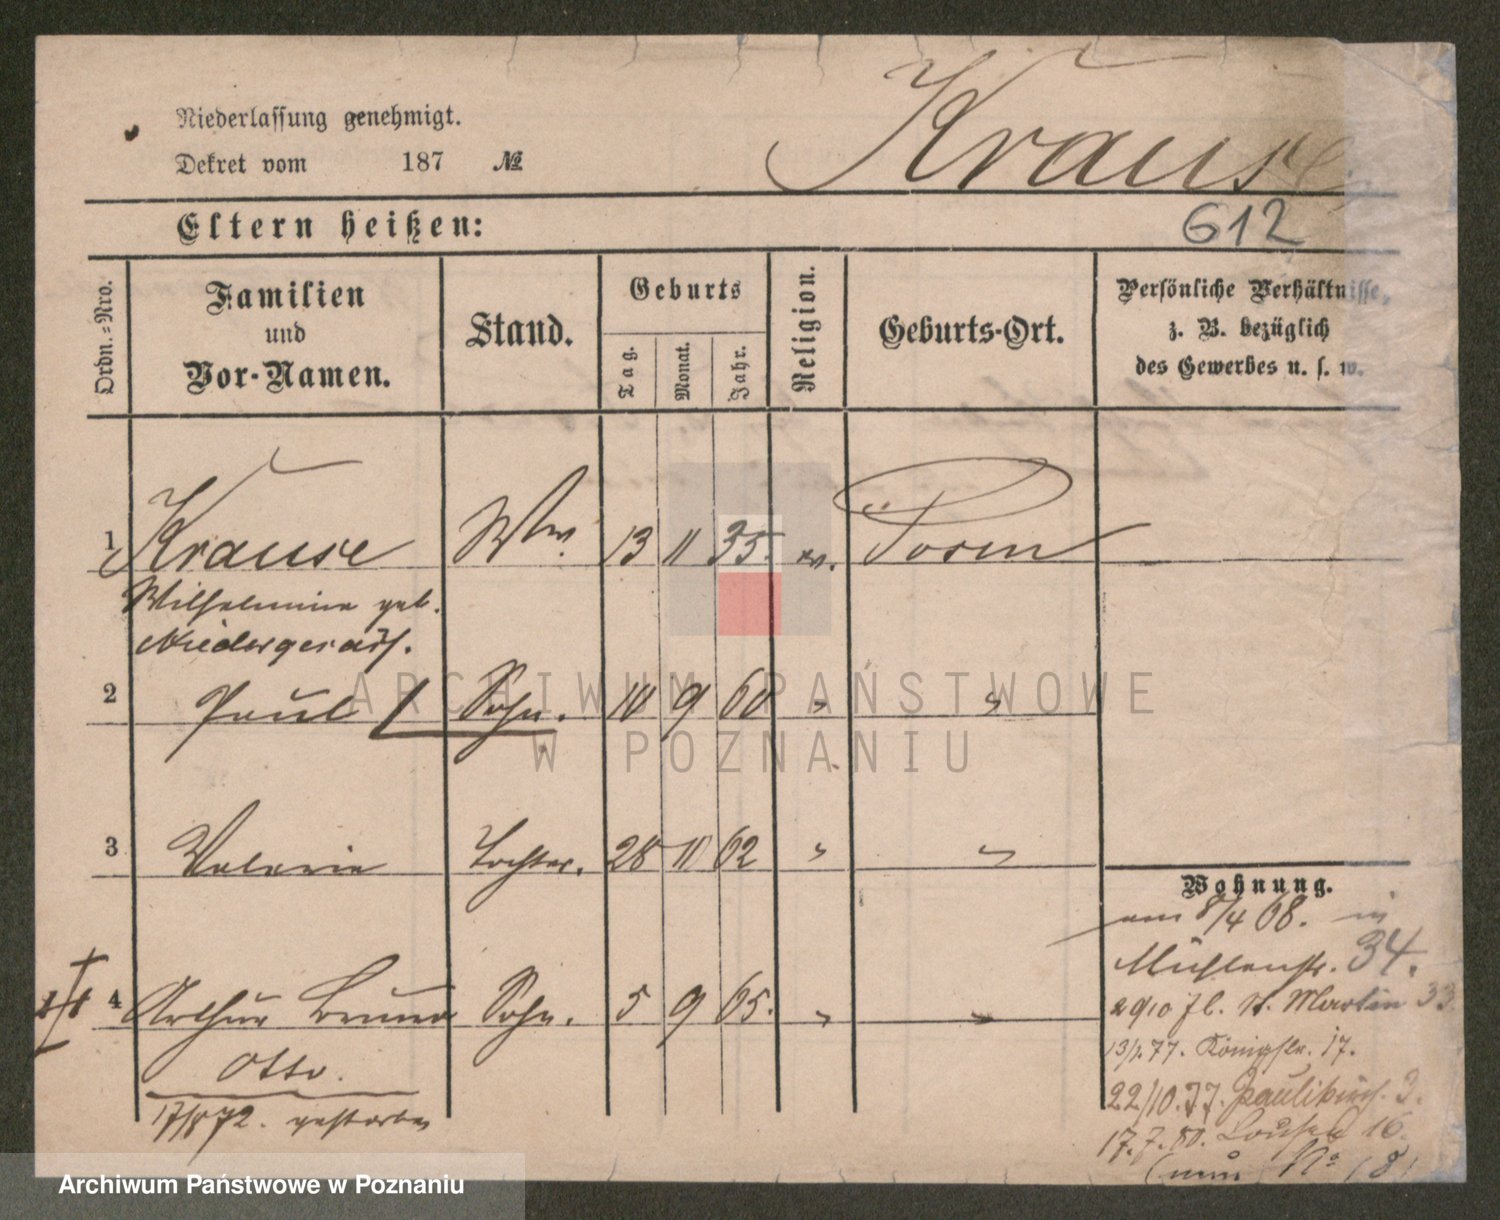 Niederlassung genehmigt.
Dekret vom 187 №
Krause
612
Eltern heißen:
Ordn.-Nro.
Familien
und
Vor-Namen.
Stand.
Geburts
Tag.
Monat.
Jahr.
Religion.
Geburts-Ort.
Persönliche Verhältnisse,
z. B. bezüglich
des Gewerbes u. s. w.
1 Krause Ww. 13 11 35. ev. Posen
Wilhelmine geb.
2 Paul Sohn. 10 9 60 " "
3 Valerie Tochter. 28 11 62 " "
4 Arthur Bruno Sohn. 5 9 65. " "
Otto.
17/8 72. gestorben
Wohnung.
am 8/4 68. in
Mühlenstr. 34.
29/10 71. St. Martin 33
77. Königstr. 17.
22/10.77. Paulikirch. 3.
17.7.80. 16.
(nun No 18)
ARCHIWUM PAŃSTWOWE
W POZNANIU
Archiwum Państwowe w Poznaniu